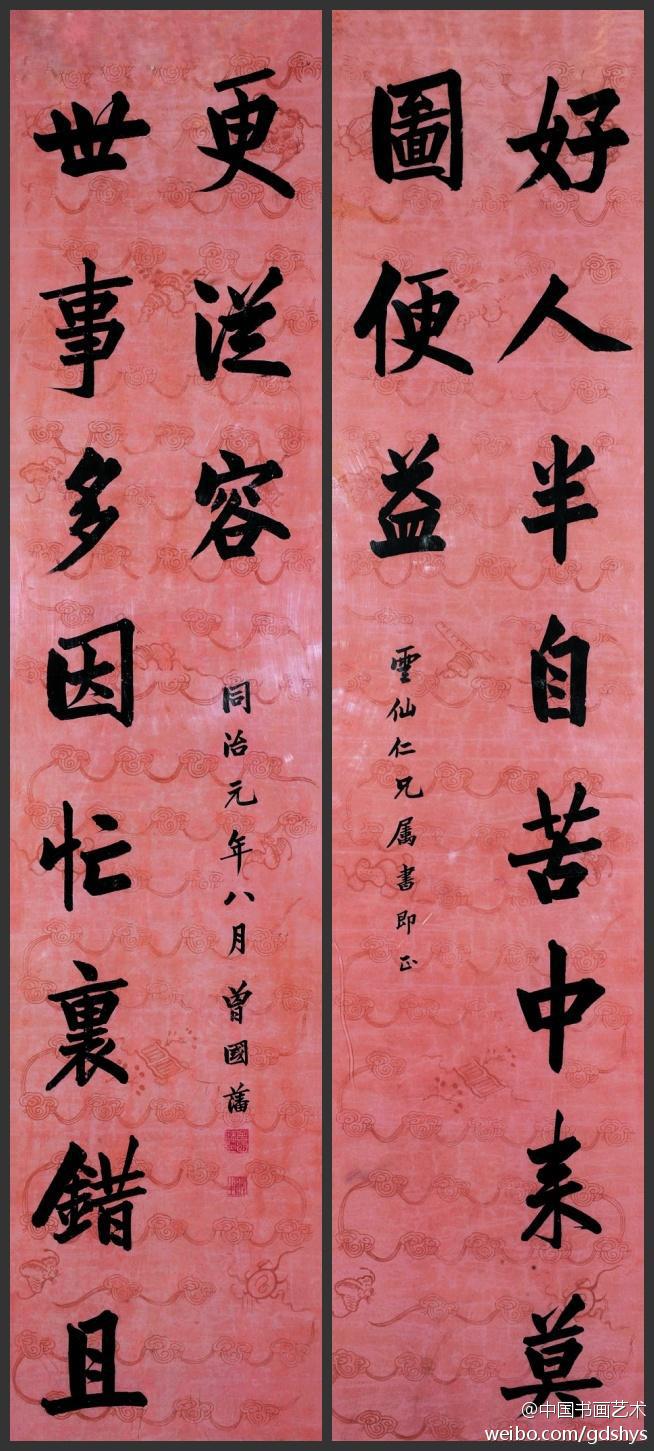 好人半自苦中来莫
圖便益
雲仙仁兄属書即正
世事多因忙裏錯且
更從容
同治元年八月曾國藩
@中国书画艺术
weibo.com/gdshys